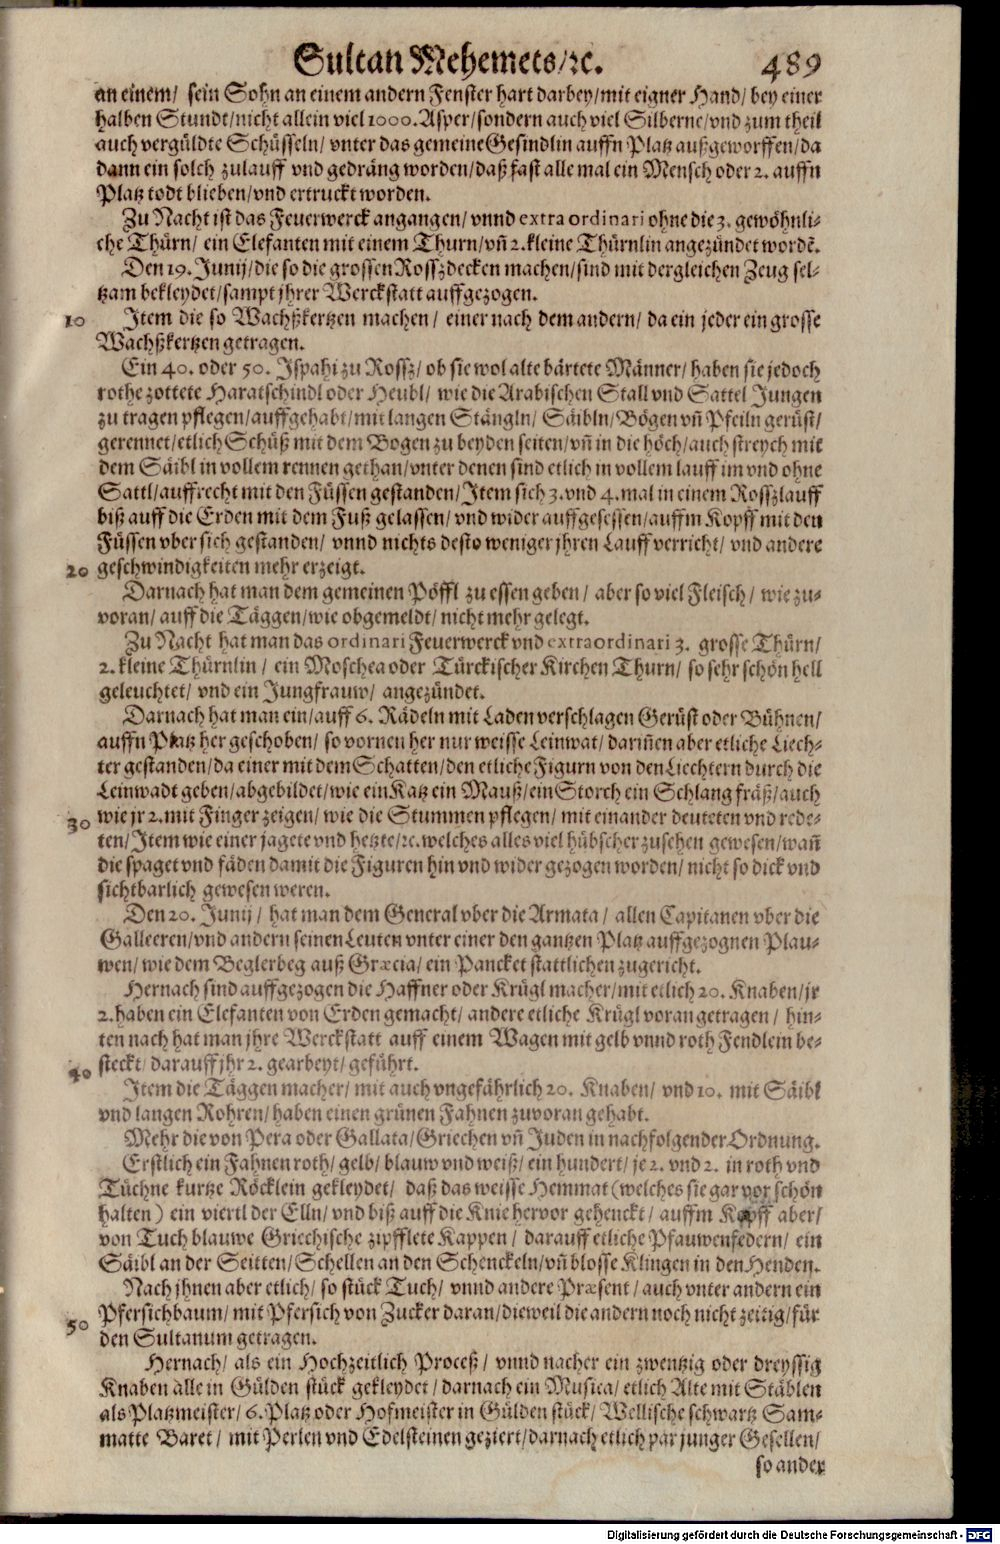 Sultan Mehemets/ꝛc. 489
an einem/ sein Sohn an einem andern Fenster hart darbey/mit eigner Hand/ bey einer
halben Stundt/nicht allein viel 1000. Asper/sondern auch viel Silberne/vnd zum theil
auch vergüldte Schüsseln/ vnter das gemeine Gesindlin auffn Platz außgeworffen/da
dann ein solch zulauff vnd gedräng worden/daß fast alle mal ein Mensch oder 2. auffn
Platz todt blieben/vnd ertruckt worden.
Zu Nacht ist das Feuerwerck angangen/ vnnd extra ordinari ohne die 3. gewöhnli-
che Thürn/ ein Elefanten mit einem Thurn/vñ 2. kleine Thürnlin angezündet wordẽ.
Den 19. Junij/die so die grossen Rossz decken machen/sind mit dergleichen Zeug sel-
tzam bekleydet/sampt jhrer Werckstatt auffgezogen.
10 Item die so Wachßkertzen machen/ einer nach dem andern/ da ein jeder ein grosse
Wachßkertzen getragen.
Ein 40. oder 50. Ispahi zu Rossz/ ob sie wol alte bärtete Männer/ haben sie jedoch
rothe zottete Haratschindl oder Heubl/ wie die Arabischen Stall vnd Sattel Jungen
zu tragen pflegen/auffgehabt/mit langen Stängln/ Säibln/Bögen vñ Pfeiln gerüst/
gerennet/etlich Schüß mit dem Bogen zu beyden seiten/vñ in die höch/auch streych mit
dem Säibl in vollem rennen gethan/vnter denen sind etlich in vollem lauff im vnd ohne
Sattl/auffrecht mit den Füssen gestanden/Item sich 3. vnd 4. mal in einem Rossz lauff
biß auff die Erden mit dem Fuß gelassen/ vnd wider auffgesessen/auffm Kopff mit den
Füssen vber sich gestanden/ vnnd nichts desto weniger jhren Lauff verricht/ vnd andere
20 geschwindigkeiten mehr erzeigt.
Darnach hat man dem gemeinen Pöffl zu essen geben/ aber so viel Fleisch/ wie zu-
voran/ auff die Täggen/wie obgemeldt/ nicht mehr gelegt.
Zu Nacht hat man das ordinari Feuerwerck vnd extraordinari 3. grosse Thürn/
2. kleine Thürnlin/ ein Moschea oder Türckischer Kirchen Thurn/ so sehr schön hell
geleuchtet/ vnd ein Jungfrauw/ angezündet.
Darnach hat man ein/auff 6. Rädeln mit Laden verschlagen Gerüst oder Bühnen/
auffn Platz her geschoben/ so vornen her nur weisse Leinwat/ dariñen aber etliche Liech-
ter gestanden/da einer mit dem Schatten/den etliche Figurn von den Liechtern durch die
Leinwadt geben/abgebildet/wie ein Katz ein Mauß/ein Storch ein Schlang fräß/auch
30 wie jr 2. mit Finger zeigen/ wie die Stummen pflegen/ mit einander deuteten vnd rede-
ten/Item wie einer jagete vnd hetzte/ꝛc. welches alles viel hübscher zusehen gewesen/wañ
die spaget vnd fäden damit die Figuren hin vnd wider gezogen worden/ nicht so dick vnd
sichtbarlich gewesen weren.
Den 20. Junij/ hat man dem General vber die Armata/ allen Capitanen vber die
Galleeren/vnd andern seinen Leuten vnter einer den gantzen Platz auffgezognen Plau-
wen/wie dem Beglerbeg auß Græcia/ein Pancket stattlichen zugericht.
Hernach sind auffgezogen die Haffner oder Krügl macher/mit etlich 20. Knaben/jr
2. haben ein Elefanten von Erden gemacht/ andere etliche Krügl voran getragen/ hin-
ten nach hat man jhre Werckstatt auff einem Wagen mit gelb vnnd roth Fendlein be-
40 steckt/darauff jhr 2. gearbeyt/geführt.
Item die Täggen macher/ mit auch vngefährlich 20. Knaben/ vnd 10. mit Säibl
vnd langen Rohren/haben einen grünen Fahnen zuvoran gehabt.
Mehr die von Pera oder Gallata/Griechen vñ Juden in nachfolgender Ordnung.
Erstlich ein Fahnen roth/gelb/blauw vnd weiß/ein hundert/je 2. vnd 2. in roth vnd
Tüchne kurtze Röcklein gekleydet/ daß das weisse Hemmat (welches sie gar vor schön
halten) ein viertl der Elln/vnd biß auff die Knie hervor gehenckt/auffm Kopff aber/
von Tuch blauwe Griechische zipfflete Kappen/ darauff etliche Pfauwenfedern/ ein
Säibl an der Seitten/Schellen an den Schenckeln/vñ blosse Klingen in den Henden.
Nach jhnen aber etlich/ so stück Tuch/ vnnd andere Præsent/auch vnter andern ein
50 Pfersichbaum/ mit Pfersich von Zucker daran/dieweil die andern noch nicht zeitig/für
den Sultanum getragen.
Hernach/ als ein Hochzeitlich Proceß/ vnnd nacher ein zwentzig oder dreyssig
Knaben alle in Gülden stück gekleydet/darnach ein Musica/etlich Alte mit Stäblen
als Platzmeister/6. Platz oder Hofmeister in Gülden stück/ Wellische schwartz Sam-
matte Baret/ mit Perlen vnd Edelsteinen geziert/darnach etlich par junger Gesellen/
so ander
Digitalisierung gefördert durch die Deutsche Forschungsgemeinschaft - DFG